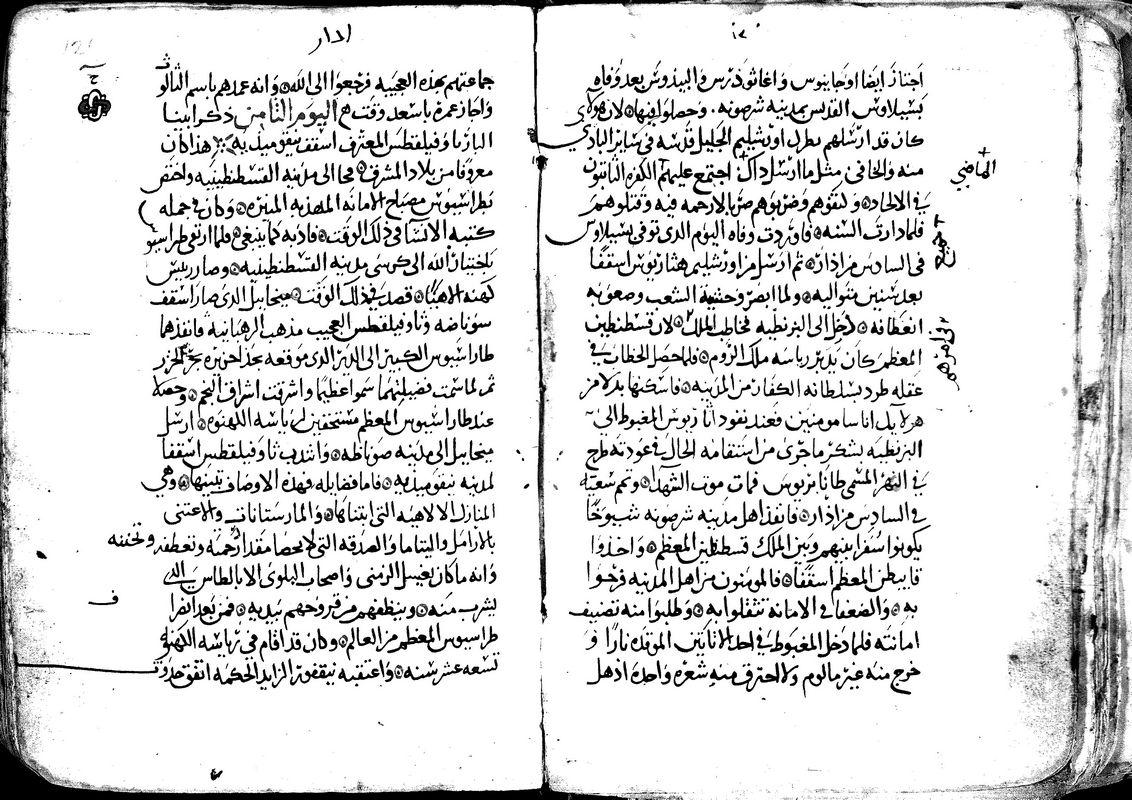 اجتاز ايضا اوجانيوس واغاثوذرس والبيذوس بعد وفاه
كسيلاوس القديس بمدينه شرصونه وحصلوا فيها لان هولاى
كان قد ارسلهم بطرك اورشليم الجليل قدسه فى ساير البادى
منه والخافى مثل ما ارسل داك اجتمع عليهم الكفره الثابتون
فى الالحاد ولكنوهم وضربوهم ضربا لارحمه فيه وقتلوهم
فلما دارت السنه فاوردت وفاه اليوم الدى توفى بسيلاوس
فى السادس من اذار ثم ارسل من اورشليم هثاريوس اسقفا
بعد سنين متواليه ولما ابصر وحشية الشعب وصعوبه
انعطافه دخل الى البزنطيه فخاطب الملك لان قسطنطين
المعظم كان يدبر رياسه ملك الروم فلما حصل الخطاب فى
عقله طرد بسلطانه الكفار من المدينه فاسكنها بدلا من
هولايك اناسا مومنين فعند نفود اثاريوس المغبوط الى
البزنطيه يشكر ما جرى من استقامه الحال فى عودته طرح
فى النهر المسمى طانابريوس فمات موت الشهدا وتم سعيه
فى السادس من اذار فانفذ اهل مدينه شرصونه شيوخا
يكونوا سفرا بينهم وبين الملك قسطنطين المعظم واخذوا
قابيطن المعظم اسقفا فالمومنون من اهل المدينه فرحوا
به والضعفا فى الامانه تثقلوا به وطلبوا منه تصنيف
امانته فلما دخل المغبوط فى احد الاتاتين الموقده نارا و
خرج منه غير مالوم ولا احترق منه شعره واحده اذهل
الماضي
اذار
جماعتهم بهذه العجيبه فرجعوا الى الله وانه عمدهم باسم الثالوث
واجاز عمره باسعد وقت اليوم الثامن ذكر ابينا
البار ثاوفيلقطس المعترف اسقف نيقوميديه هذا كان
معروفا من بلاد المشرق فجا الى مدينه القسطنطينيه واختص
بطراسيوس مصباح الامانه المهديه المنيره وكان فى جمله
كتبه الانشا فى ذلك الوقت فادبه كما ينبغى فلما ارتقى طراسيو
باختيار الله الى كرسى مدينه القسطنطينيه وصار رييس
كهنه الاهيا قصد فى ذلك الوقت ميخاييل الدى صار اسقف
سوناضه وثاوفيلقطس العجيب مذهب الرهبانيه فانفذهما
طاراسيوس الكبير الى الدير الدى موقعه بحذا جزيره بحر الخزر
ثم لما سمت فضيلتهما سموا عظيما واشرقت اشراق النجم وحصلا
عند طاراسيوس المعظم مستحقين لرياسه الكهنوه ارسل
ميخاييل الى مدينه صوناظه وانتدب ثاوفيلقطس اسقفا
لمدينه نيقوميديه فاما فضايله فهذه الاوصاف تبينها وهي
المنازل الالاهيه التى ابتناها والمارستانات والاعتنى
بالارامل واليتاما والصدقه التى لا يحصا مقدار رحمته وتعطفه وتحننه
وانه ما كان يغسل الزمنى واصحاب البلوى الا بالطاس الدى
يشرب منه وينظفهم من قروحهم بيديه فمن بعد انصرا
ف
طراسيوس المعظم من العالم وكان قد اقام فى رياسه الكهنوه
تسعه عشر سنه واعتقبه نيقفور الزايد الحكمه اتفق حدوث